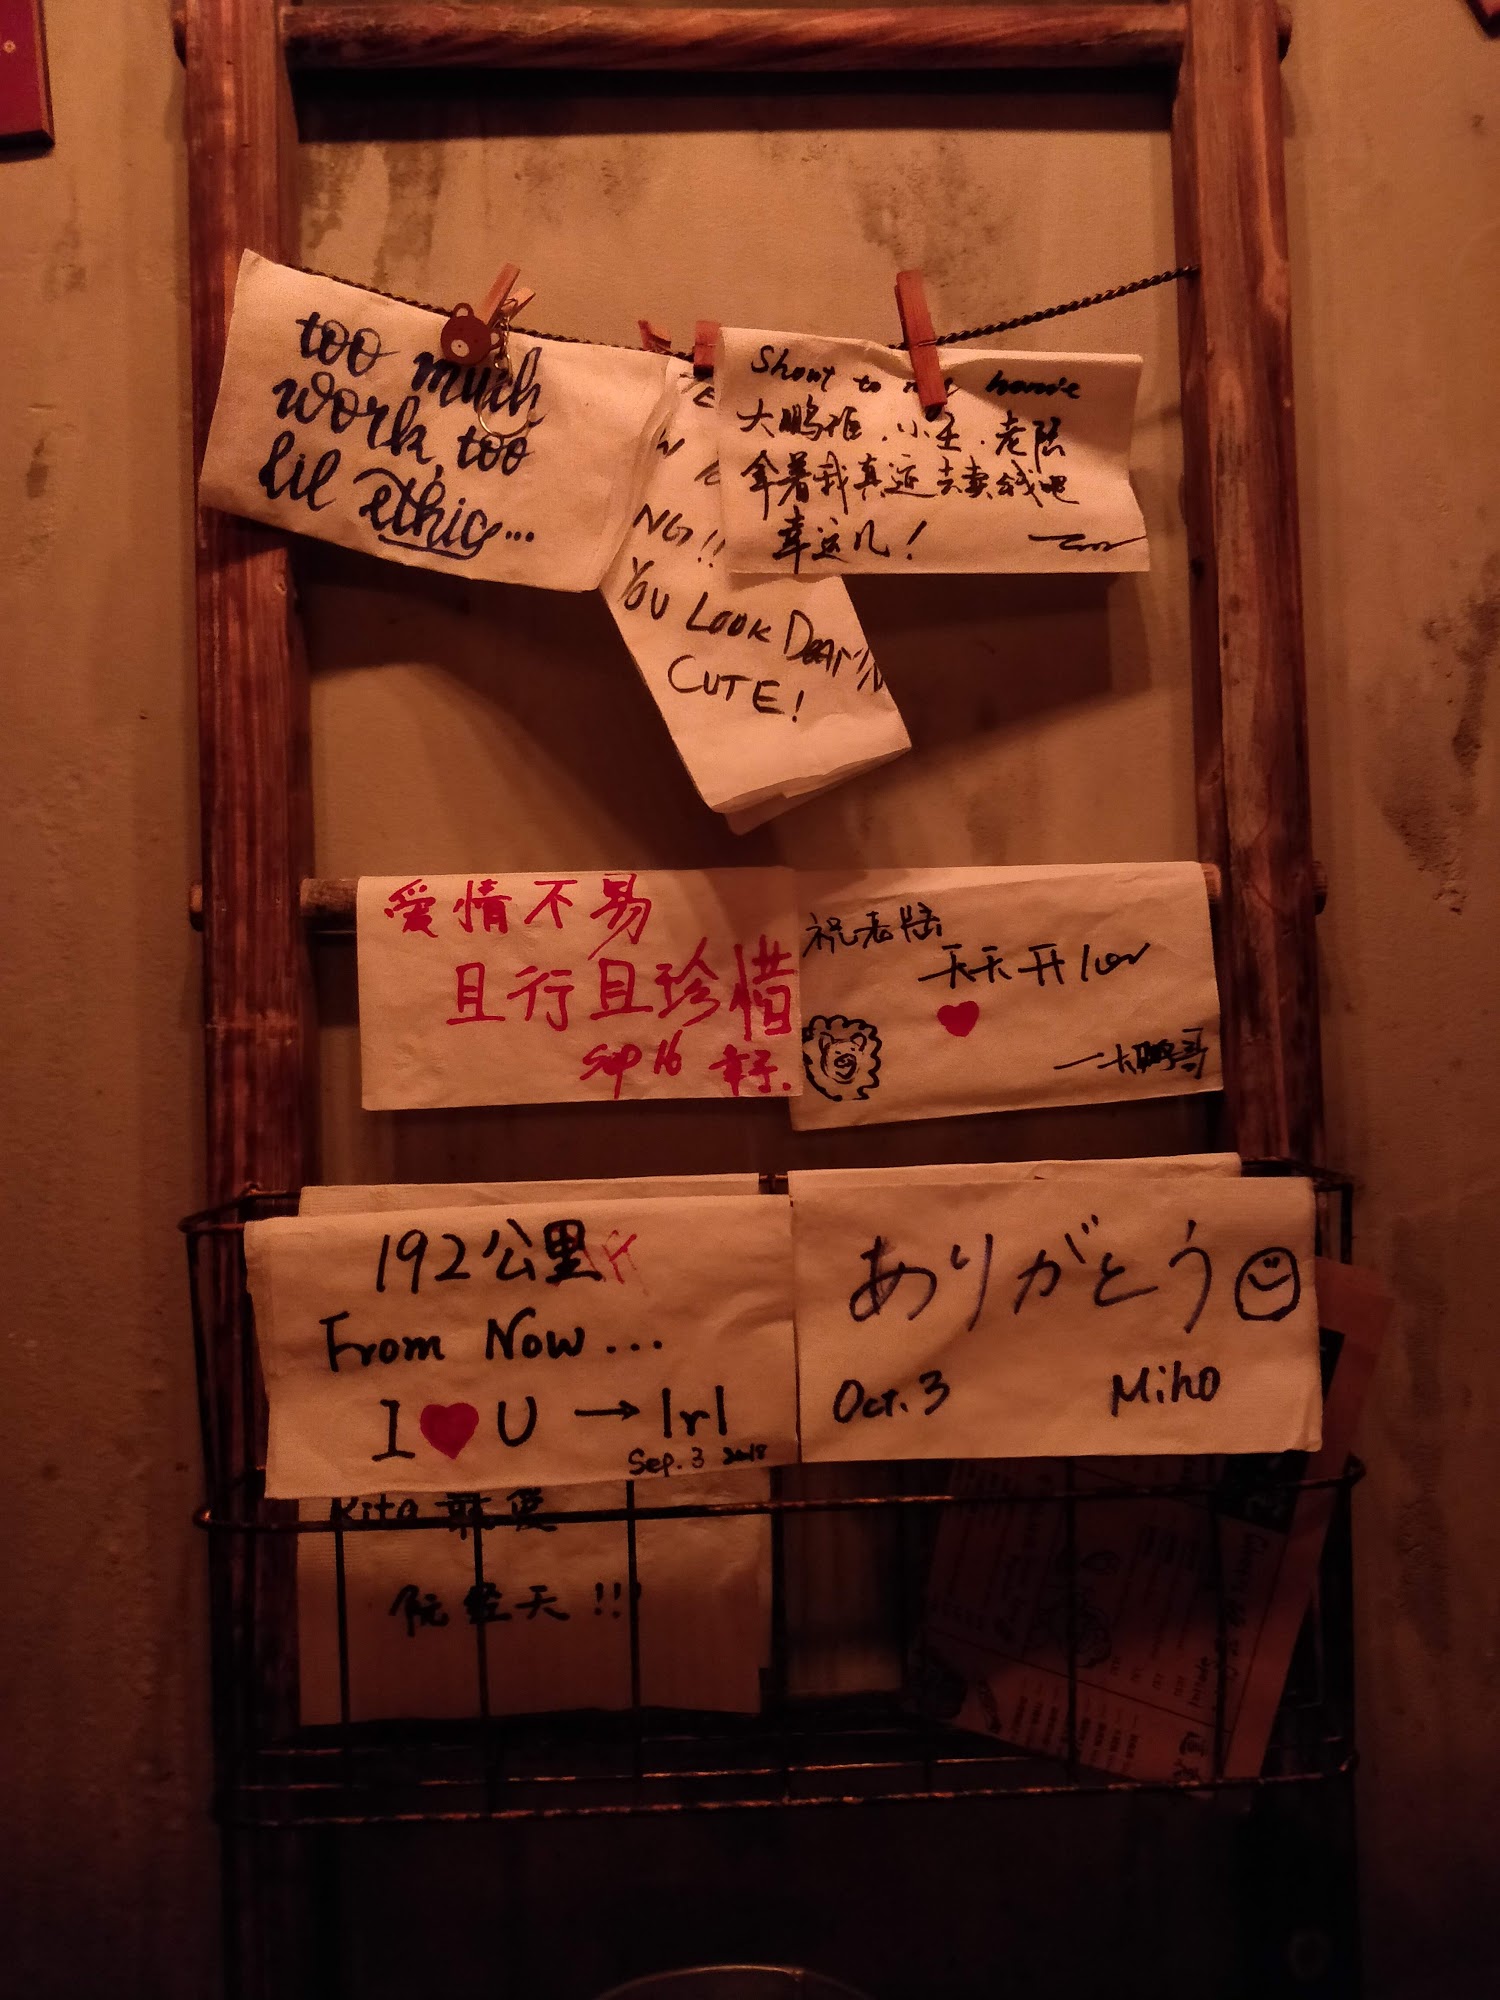 too much
work, too
lil ethic...
NG!!
YOU LOOK
CUTE!
Shout to my homie
大鹏 小王、老陆
拿着我真迹去卖钱吧
幸运儿!
爱情不易
且行且珍惜
Sep 16 幸子.
祝老陆
天天开心
一大鹏哥
192公里
From Now...
I ♥ U → lrl
Sep. 3 2018
Rita 就爱
阮经天!!
ありがとう
Oct. 3 Miho